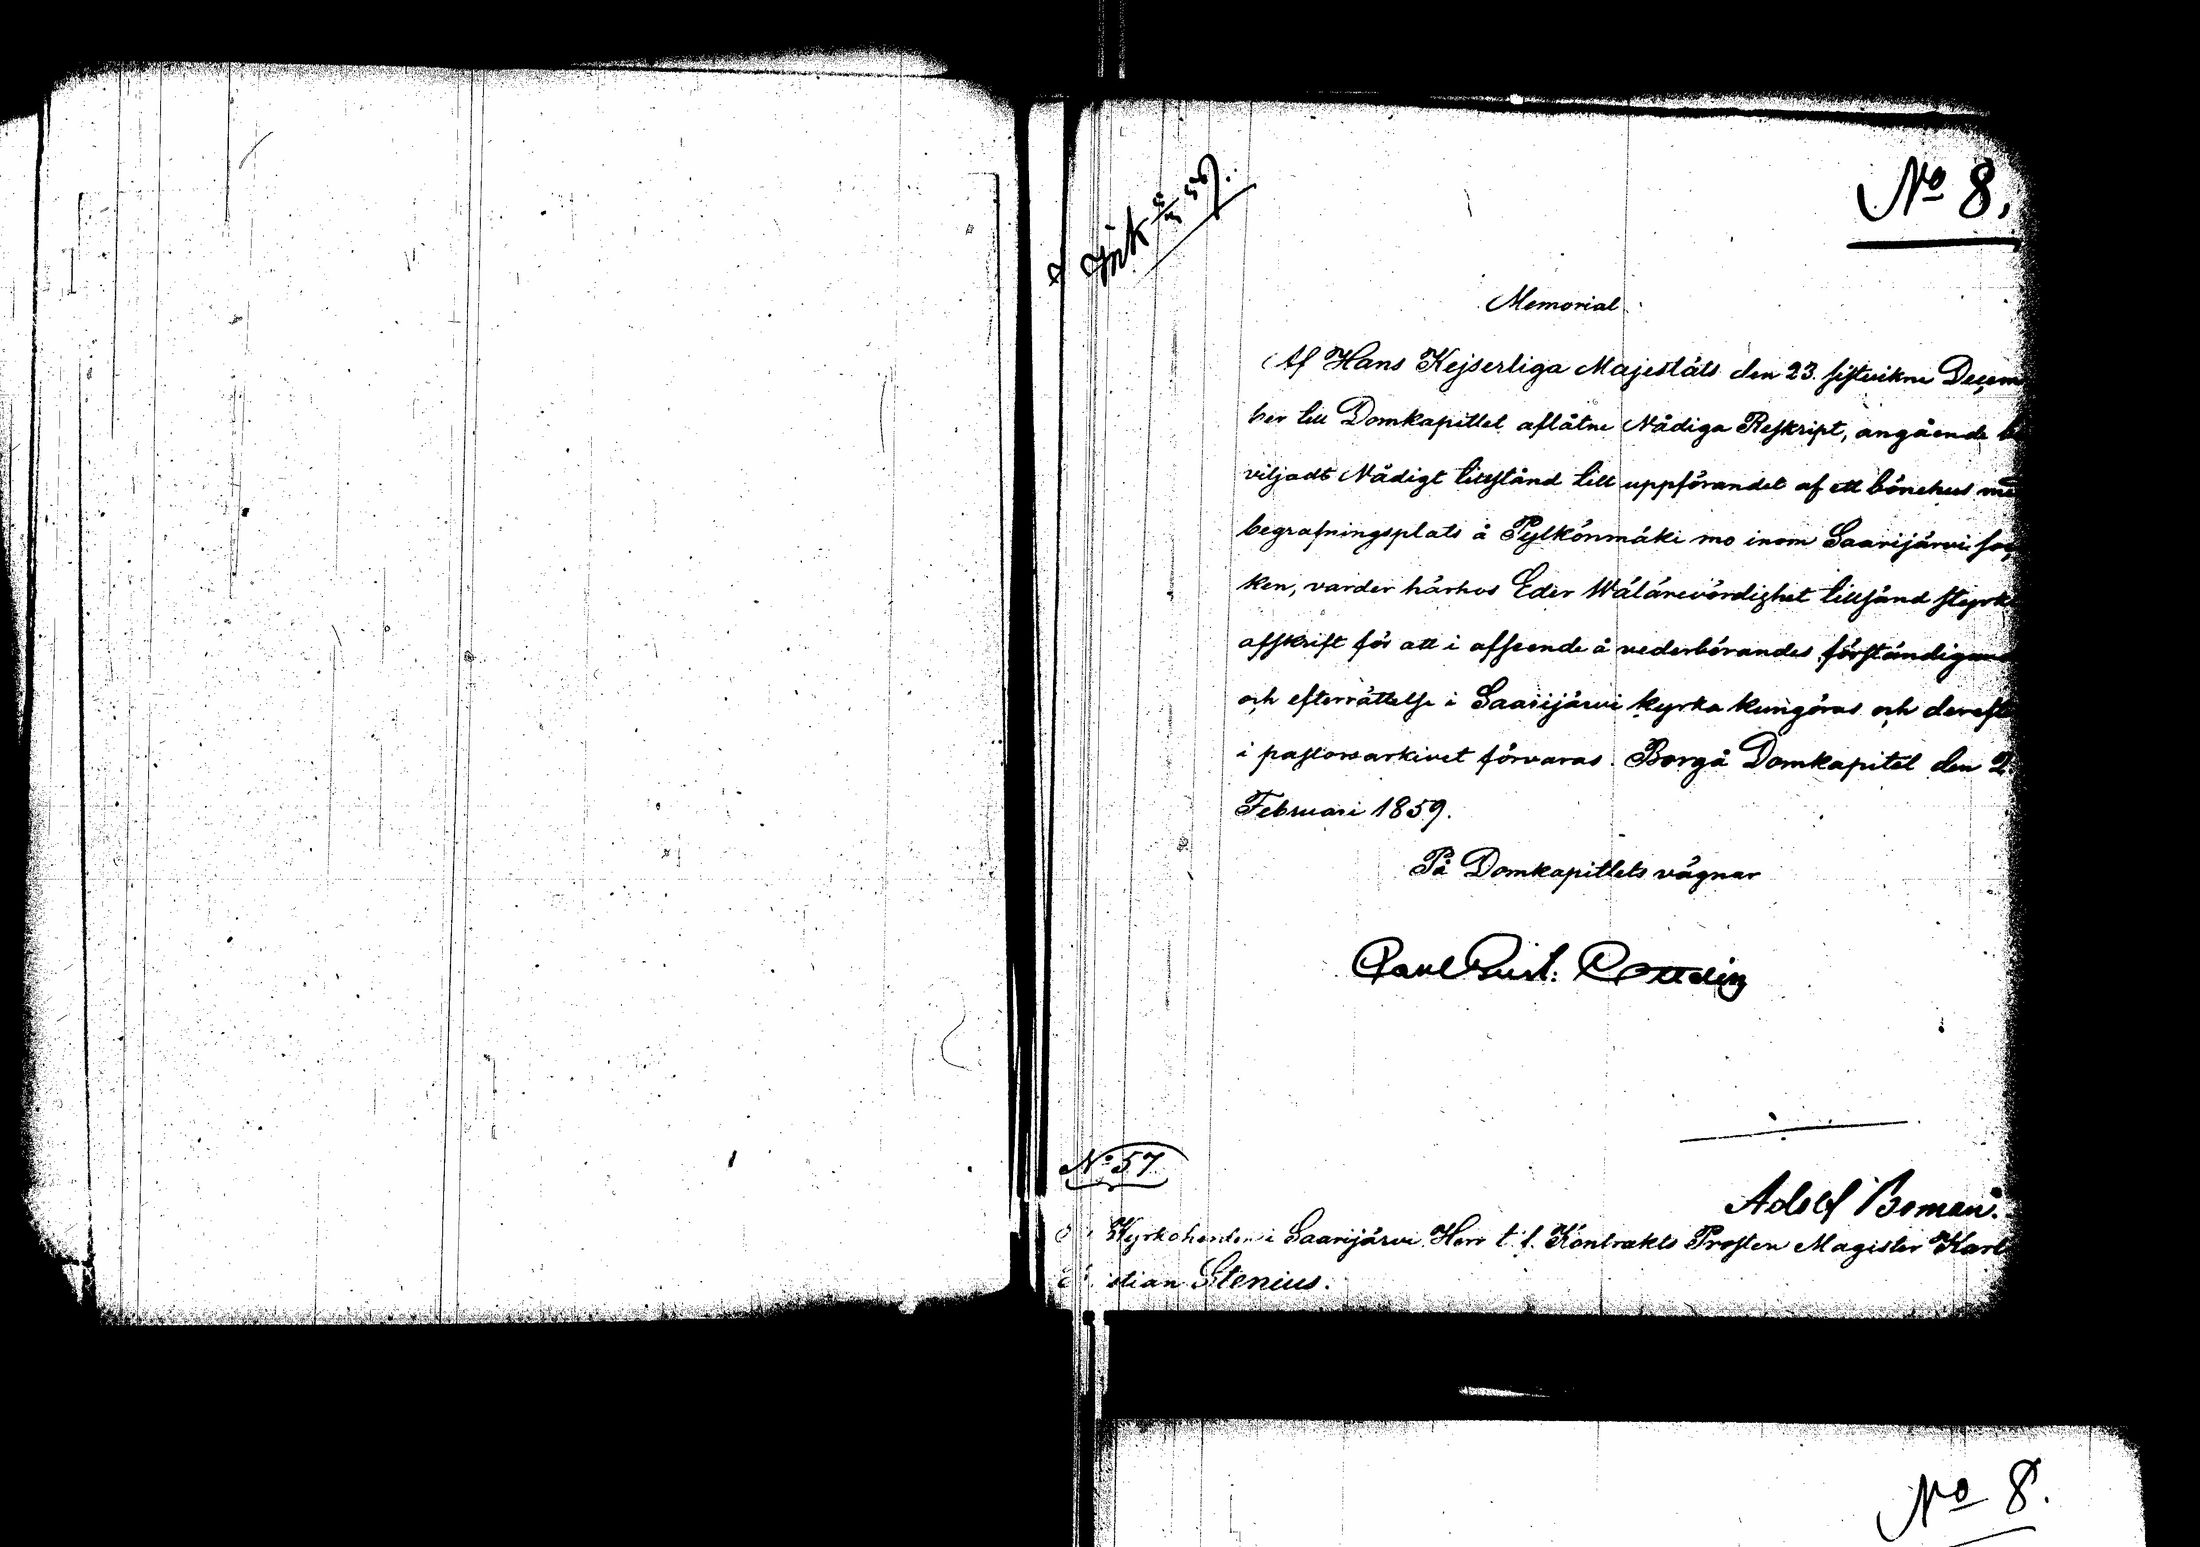 Ink 5/3 59.
No 8.
Memorial.
Af Hans Kejserliga Majestäts den 23. sistvikne Decem
ber till Domkapitlet aflåtne Nådiga Reskript, angående be
viljadt Nådigt tillstånd till uppförandet af ett bönehus me
begrafningsplats å Pylkönmäki mo inom Saarijärvi soc
ken, varder härhos Eder Wälärevördighet tillsänd styrkt
afskrift för att i afseende å vederbörandes förständigand
och efterrättelse i Saarijärvi kyrka kungöras och dereft
i pastorsarkivet förvaras. Borgå Domkapitel den 2
Februari 1859.
På Domkapitlets vägnar
Carl Gust. Ottelin
No 57
Adolf Boman.
Kyrkoherden i Saarijärvi Herr t. f. Kontrakts Prosten Magister Karl
stian Stenius.
No 8.